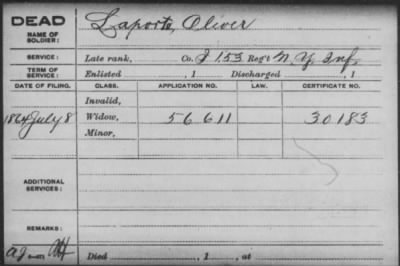 DEAD
NAME OF SOLDIER:
Laporte, Oliver
SERVICE:
Late rank, Co. I 153 Reg't N. Y. Inf.
TERM OF SERVICE:
Enlisted , 1 Discharged , 1
DATE OF FILING. CLASS. APPLICATION NO. LAW. CERTIFICATE NO.
Invalid,
1864 July 8 Widow, 56611 30183
Minor,
ADDITIONAL SERVICES:
REMARKS:
Died , 1 , at